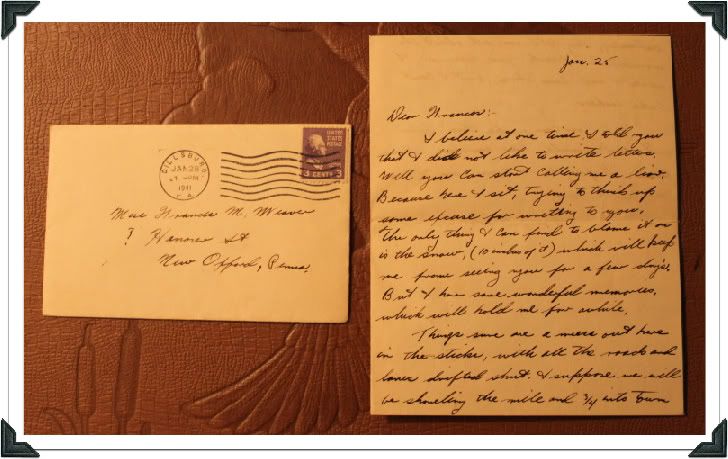 DILLSBURG
JAN 28
1941
PA.
UNITED
STATES
POSTAGE
3 CENTS 3
Miss Frances M. Weaver
Hanover St
New Oxford, Penna.
Jan. 25
Dear Frances:-
I believe at one time I told you
that I did not like to write letters
Well you can start calling me a liar.
Because here I sit, trying to think up
some excuse for writing to you.
The only thing I can find to blame it on
is the snow, (10 inches of it) which will keep
me from seeing you for a few days.
But I have some wonderful memories,
which will hold me for awhile.
Things sure are a mess out here
in the sticks, with all the roads and
lanes drifted shut. I suppose we will
be shoveling the mile and 3/4 into town